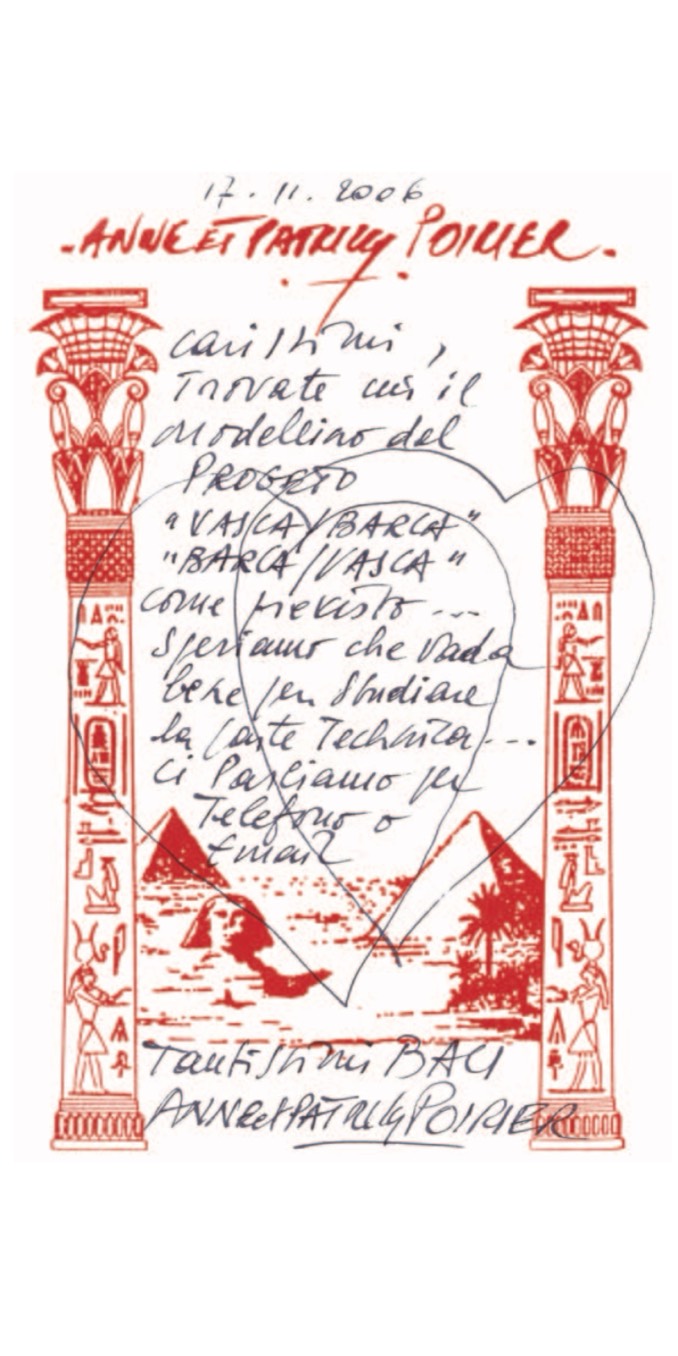 17.11.2006
- ANNE ET PATRICK POIRIER -
carissimi,
Trovate qui il
Modellino del
PROGETTO
"VASCA/BARCA"
"BARCA/VASCA"
come previsto ---
Speriamo che vada
bene per studiare
la parte Technica ---
Ci Parliamo per
Telefono o
Email
Tantissimi BACI
ANNE et PATRICK POIRIER